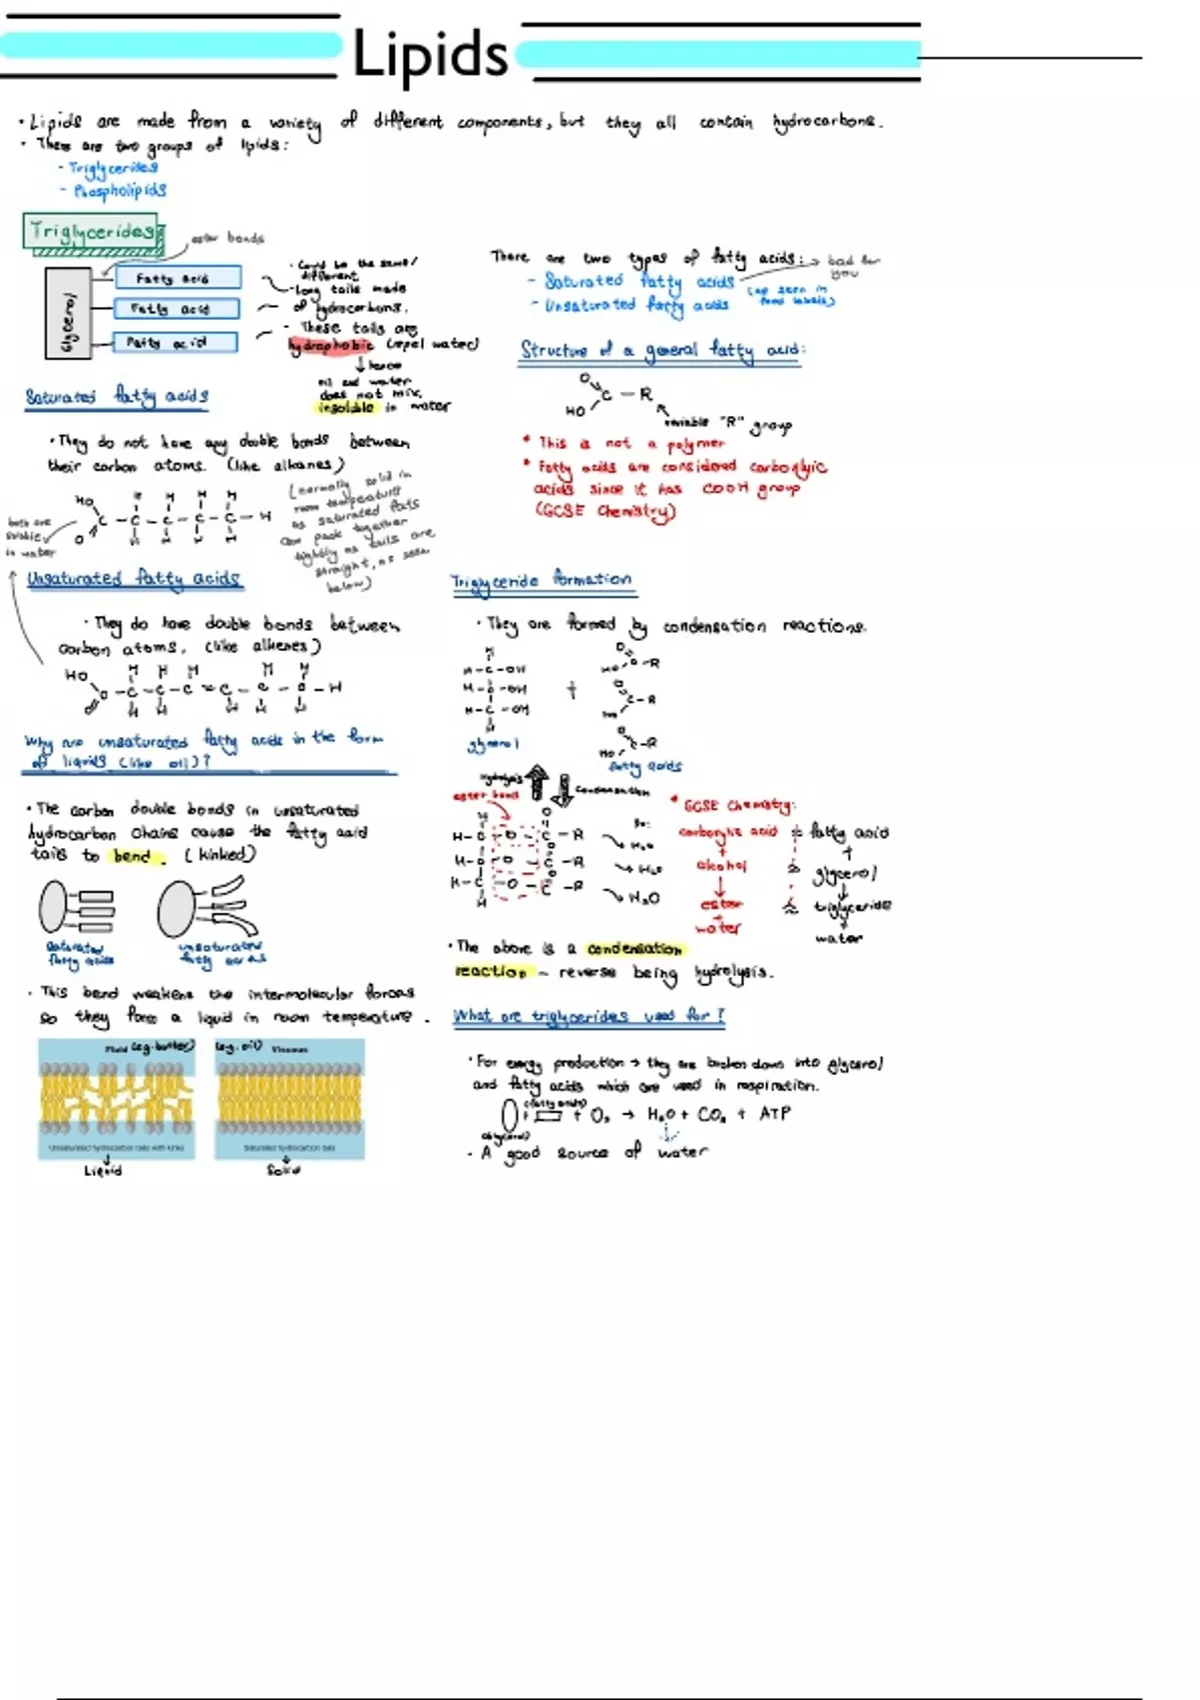 Lipids
• Lipids are made from a variety of different components, but they all contain hydrocarbons.
• There are two groups of lipids:
- Triglycerides
- Phospholipids
Triglycerides
ester bonds
Glycerol
Fatty acid
Fatty acid
Fatty acid
• Could be the same/
different
- Long tails made
of hydrocarbons.
- These tails are
hydrophobic (repel water)
↓ hence
oil and water
does not mix,
insoluble in water
There are two types of fatty acids:
- Saturated fatty acids
- Unsaturated fatty acids
→ bad for
you
(as seen in
food labels)
Structure of a general fatty acid:
O
C - R
HO
variable "R" group
* This is not a polymer
* Fatty acids are considered carboxylic
acids since it has COOH group
(GCSE Chemistry)
Saturated fatty acids
• They do not have any double bonds between
their carbon atoms. (like alkanes)
(normally solid in
room temperature
as saturated fats
can pack together
tightly as tails are
straight, as seen
below)
HO H H H H
C - C - C - C - C - H
O H H H H
both are
soluble
in water
Unsaturated fatty acids
• They do have double bonds between
carbon atoms. (like alkenes)
HO H H H H H
Why are unsaturated fatty acids in the form
of liquids (like oil)?
• The carbon double bonds in unsaturated
hydrocarbon chains cause the fatty acid
tails to bend. (kinked)
saturated
fatty acids
unsaturated
fatty acids
• This bend weakens the intermolecular forces
so they form a liquid in room temperature.
Fluid (eg. butter)
(eg. oil) Viscous
Unsaturated hydrocarbon tails with kinks
Saturated hydrocarbon tails
Liquid
Solid
Triglyceride formation
• They are formed by condensation reactions.
H
H - C - OH
H - C - OH
H - C - OH
H
glycerol
+
fatty acids
Hydrolysis
Condensation
ester bond
H₂O
H₂O
H₂O
* GCSE Chemistry:
carboxylic acid = fatty acid
+ +
alcohol = glycerol
↓ ↓
ester = triglyceride
+ +
water water
• The above is a condensation
reaction - reverse being hydrolysis.
What are triglycerides used for?
• For energy production → they are broken down into glycerol
and fatty acids which are used in respiration.
(fatty acids)
+ + O₂ → H₂O + CO₂ + ATP
(glycerol)
• A good source of water